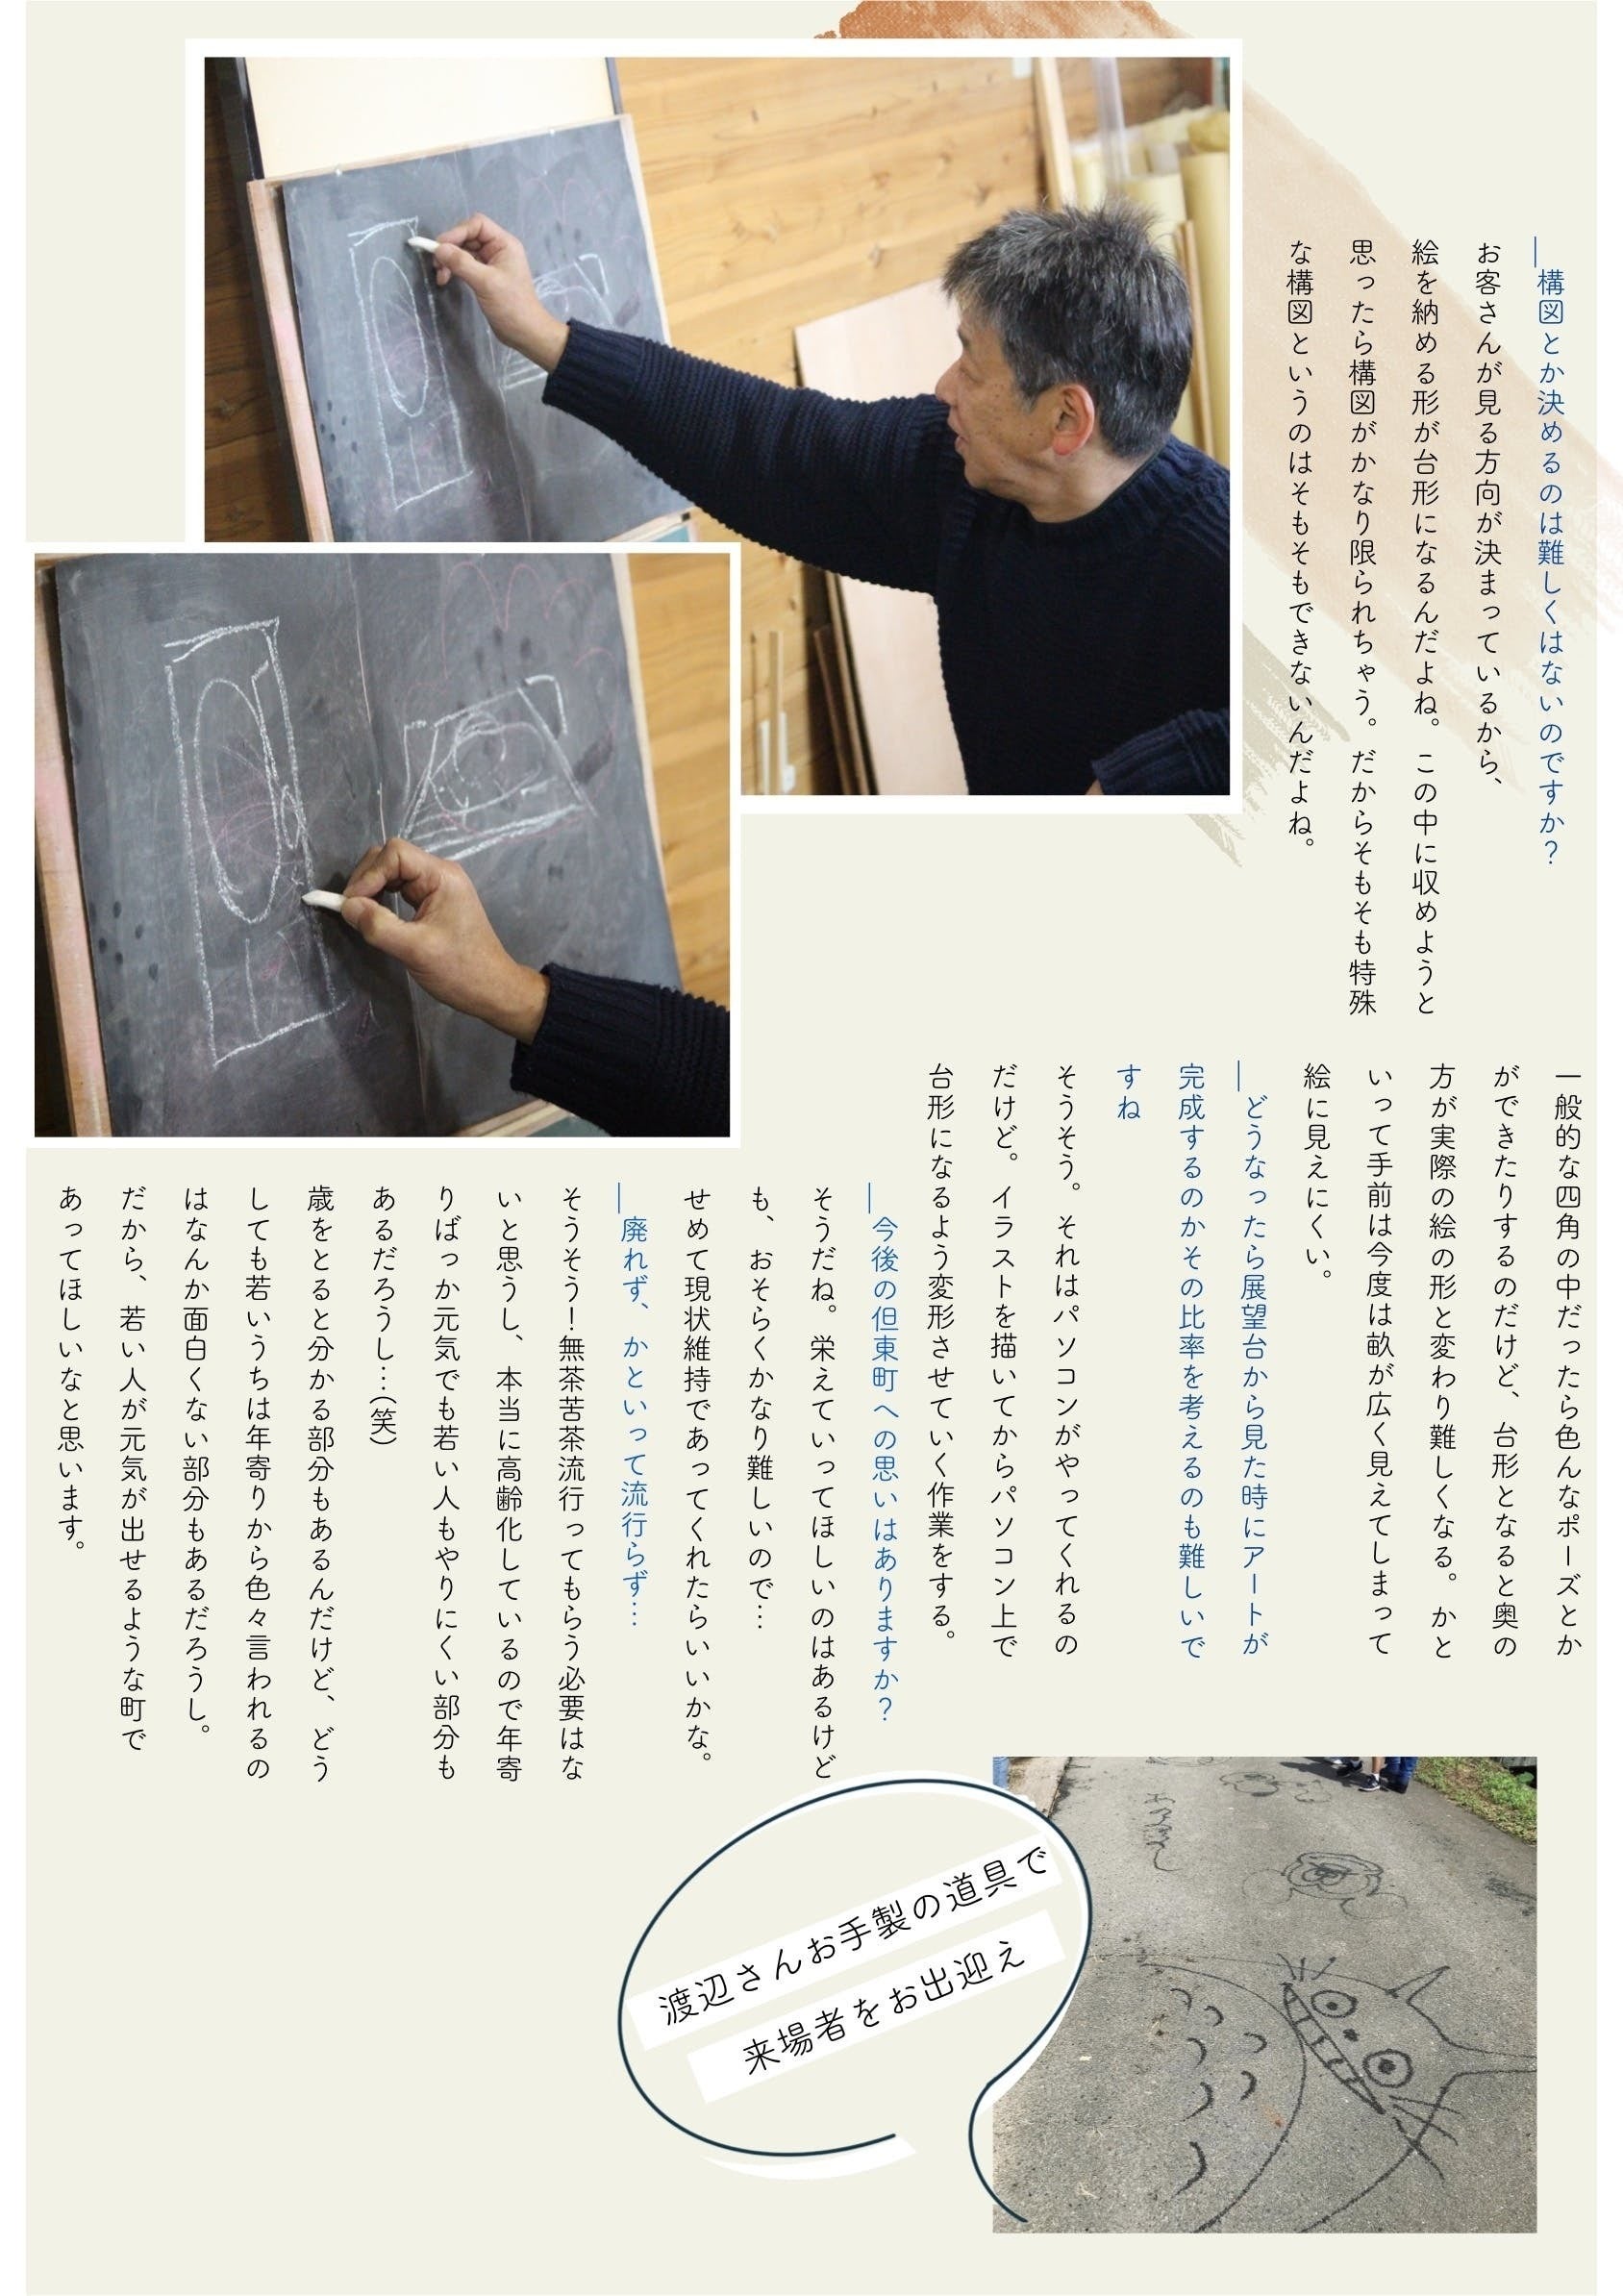 ―構図とか決めるのは難しくはないのですか？
お客さんが見る方向が決まっているから、
絵を納める形が台形になるんだよね。この中に収めようと
思ったら構図がかなり限られちゃう。だからそもそも特殊
な構図というのはそもそもできないんだよね。
一般的な四角の中だったら色んなポーズとか
ができたりするのだけど、台形となると奥の
方が実際の絵の形と変わり難しくなる。かと
いって手前は今度は畝が広く見えてしまって
絵に見えにくい。
―どうなったら展望台から見た時にアートが
完成するのかその比率を考えるのも難しいで
すね
そうそう。それはパソコンがやってくれるの
だけど。イラストを描いてからパソコン上で
台形になるよう変形させていく作業をする。
―今後の但東町への思いはありますか？
そうだね。栄えていってほしいのはあるけど
も、おそらくかなり難しいので…
せめて現状維持であってくれたらいいかな。
―廃れず、かといって流行らず…
そうそう！無茶苦茶流行ってもらう必要はな
いと思うし、本当に高齢化しているので年寄
りばっか元気でも若い人もやりにくい部分も
あるだろうし…(笑)
歳をとると分かる部分もあるんだけど、どう
しても若いうちは年寄りから色々言われるの
はなんか面白くない部分もあるだろうし。
だから、若い人が元気が出せるような町で
あってほしいなと思います。
渡辺さんお手製の道具で
来場者をお出迎え